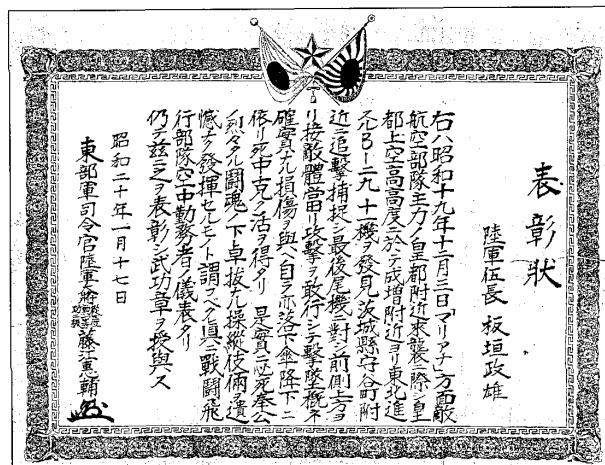 表彰狀
陸軍伍長 板垣政雄
右ハ昭和十九年十二月三日「マリアナ」方面敵
航空部隊主力ノ皇都附近來襲ニ際シ皇
都上空高高度ニ於テ成増附近ヨリ東北進
スルB-二九十一機ヲ發見茨城縣守谷町附
近ニ追撃捕捉シ最後尾機ニ對シ前側上方ヨ
リ接敵體當リ攻撃ヲ敢行シテ撃墜概ネ
確實ナル損傷ヲ與ヘ自ラ亦落下傘降下ニ
依リ死中克ク活ヲ得タリ 是實ニ必死奉公
ノ烈々タル闘魂ノ下卓拔ナル操縱伎倆ヲ遺
憾ナク發揮セルモノト謂フベク眞ニ戰闘飛
行部隊空中勤務者ノ儀表タリ
仍テ茲ニ之ヲ表彰シ武功章ヲ授與ス
昭和二十年一月十七日
東部軍司令官陸軍大將 藤江惠輔